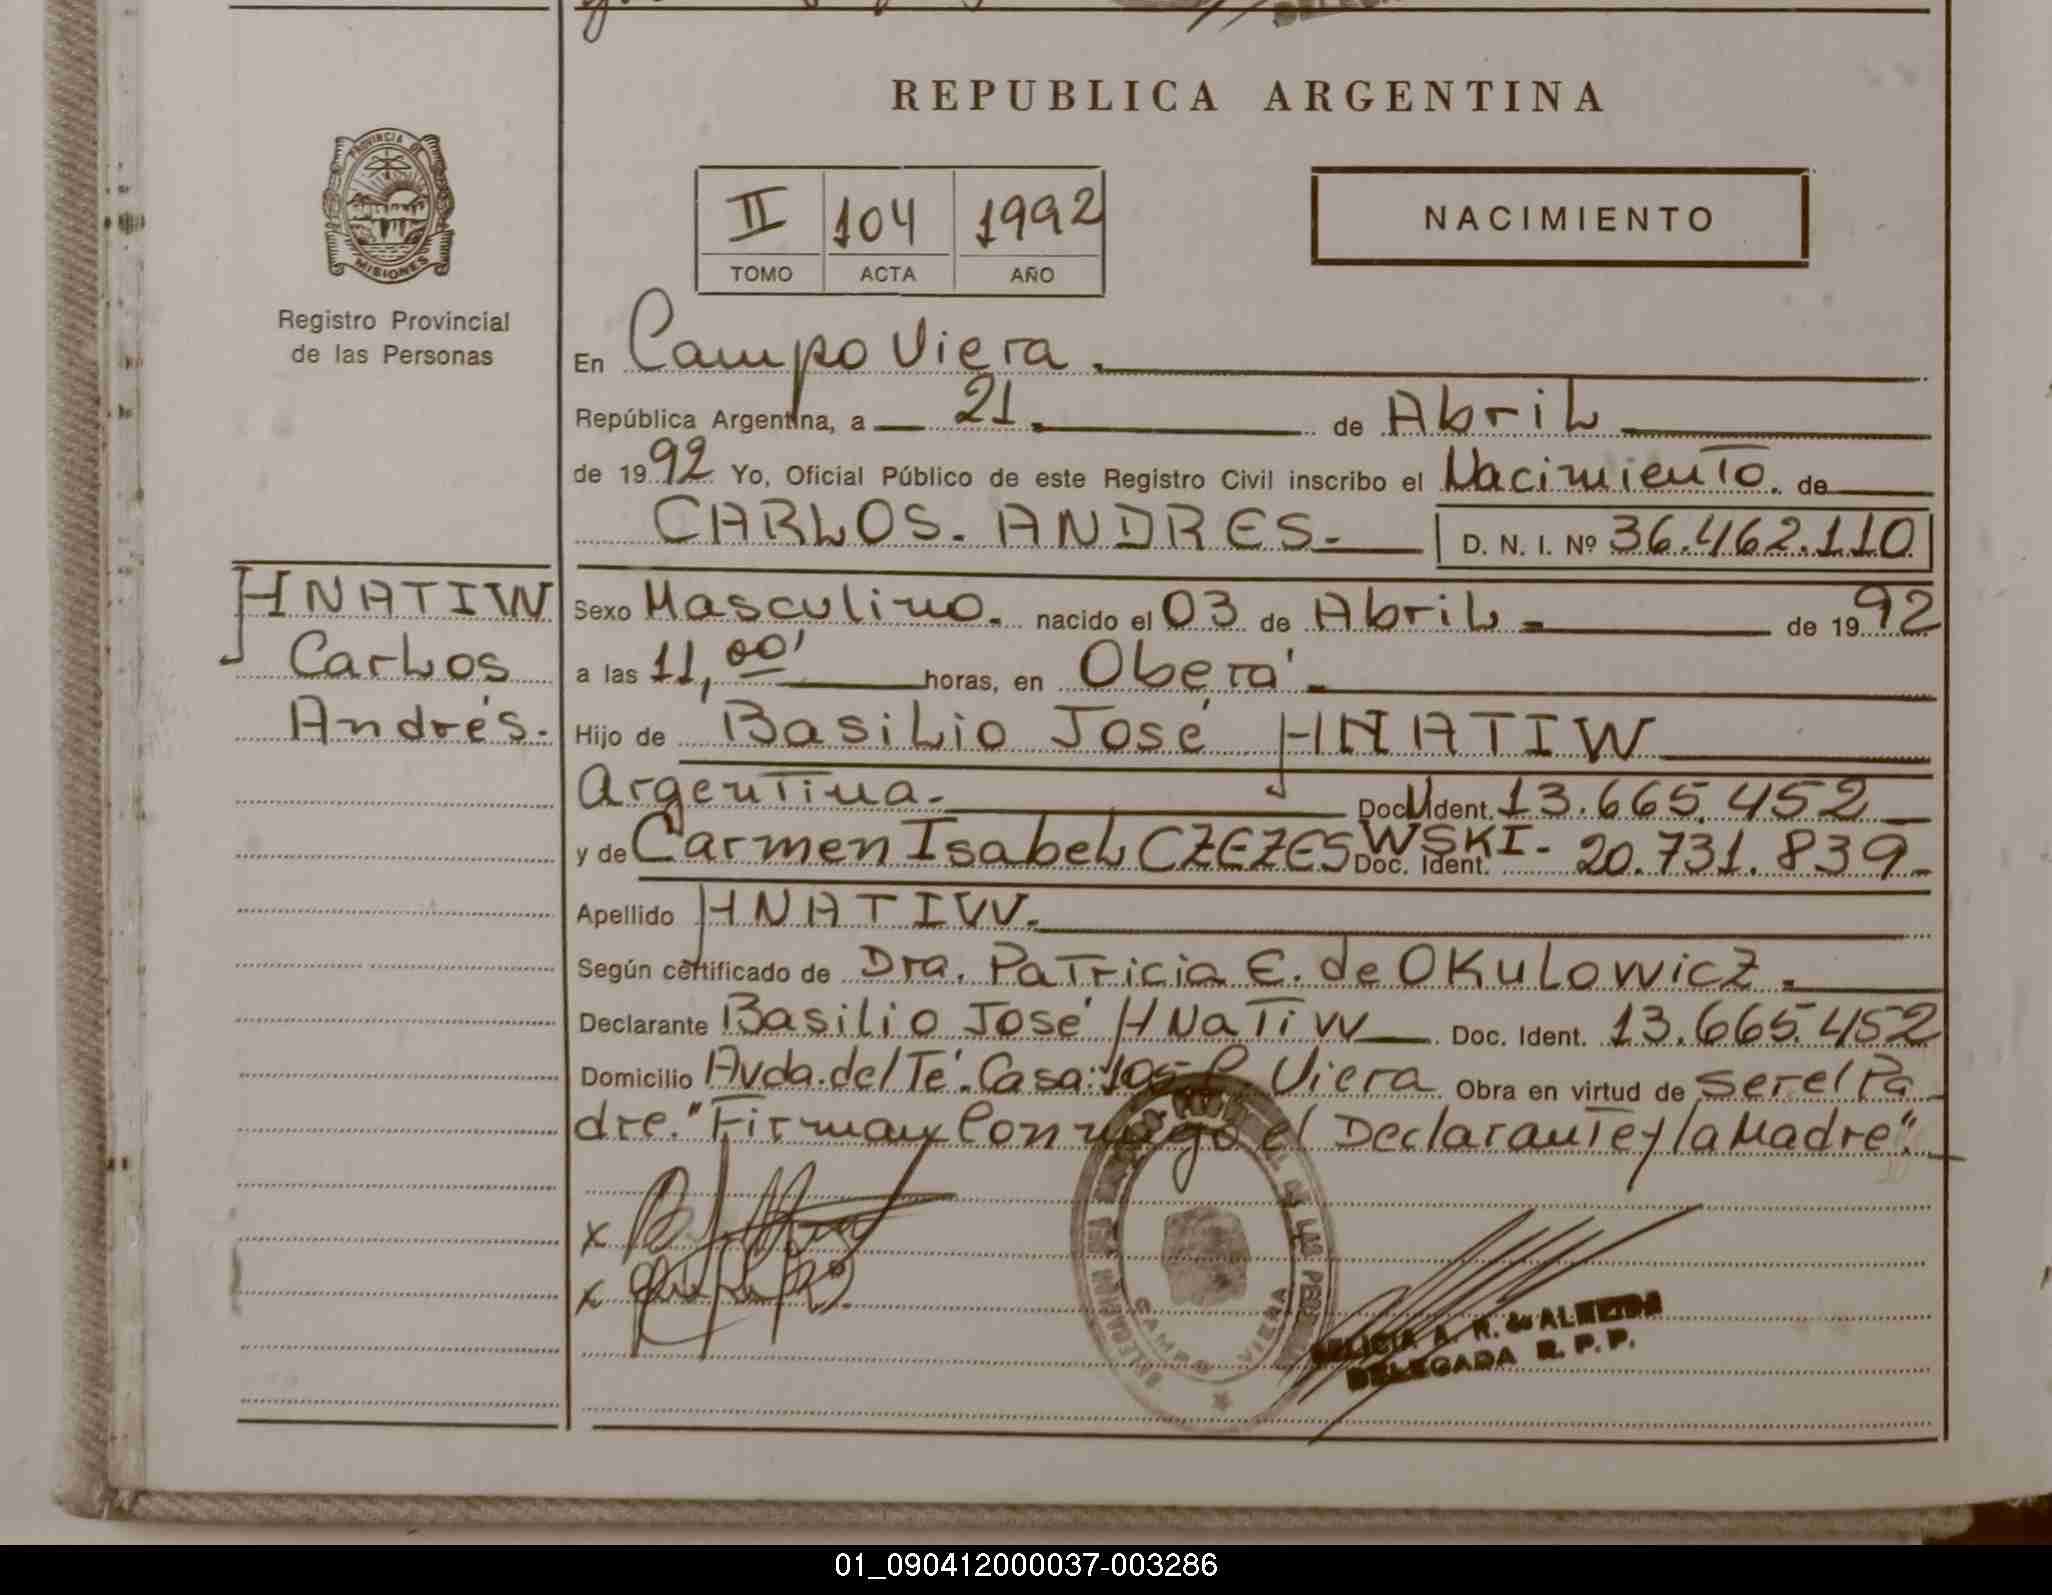 REPUBLICA ARGENTINA
PROVINCIA DE
MISIONES
Registro Provincial
de las Personas
II 104 1992
TOMO ACTA AÑO
NACIMIENTO
En Campo Viera.
República Argentina, a 21. de Abril
de 1992 Yo, Oficial Público de este Registro Civil inscribo el Nacimiento. de
CARLOS. ANDRES.- D. N. I. Nº 36.462.110
HNATIW
Carlos
Andrés.
Sexo Masculino. nacido el 03 de Abril - de 1992
a las 11,00' horas, en Oberá -
Hijo de Basilio José HNATIW
Argentina.- Doc. U Ident. 13.665.452
y de Carmen Isabel CZEZESWSKI- Doc. Ident. 20.731.839-
Apellido HNATIW.
Según certificado de Dra. Patricia E. de OKulowicz.
Declarante Basilio José HNaTiw Doc. Ident. 13.665.452
Domicilio Avda. del Té. Casa: 105 C. Viera Obra en virtud de ser el Pa
dre. "Firman Conmigo el Declarante y la Madre".
x
x
CAMPO VIERA
A. R. de ALMEIDA
DELEGADA R. P. P.
01_090412000037-003286